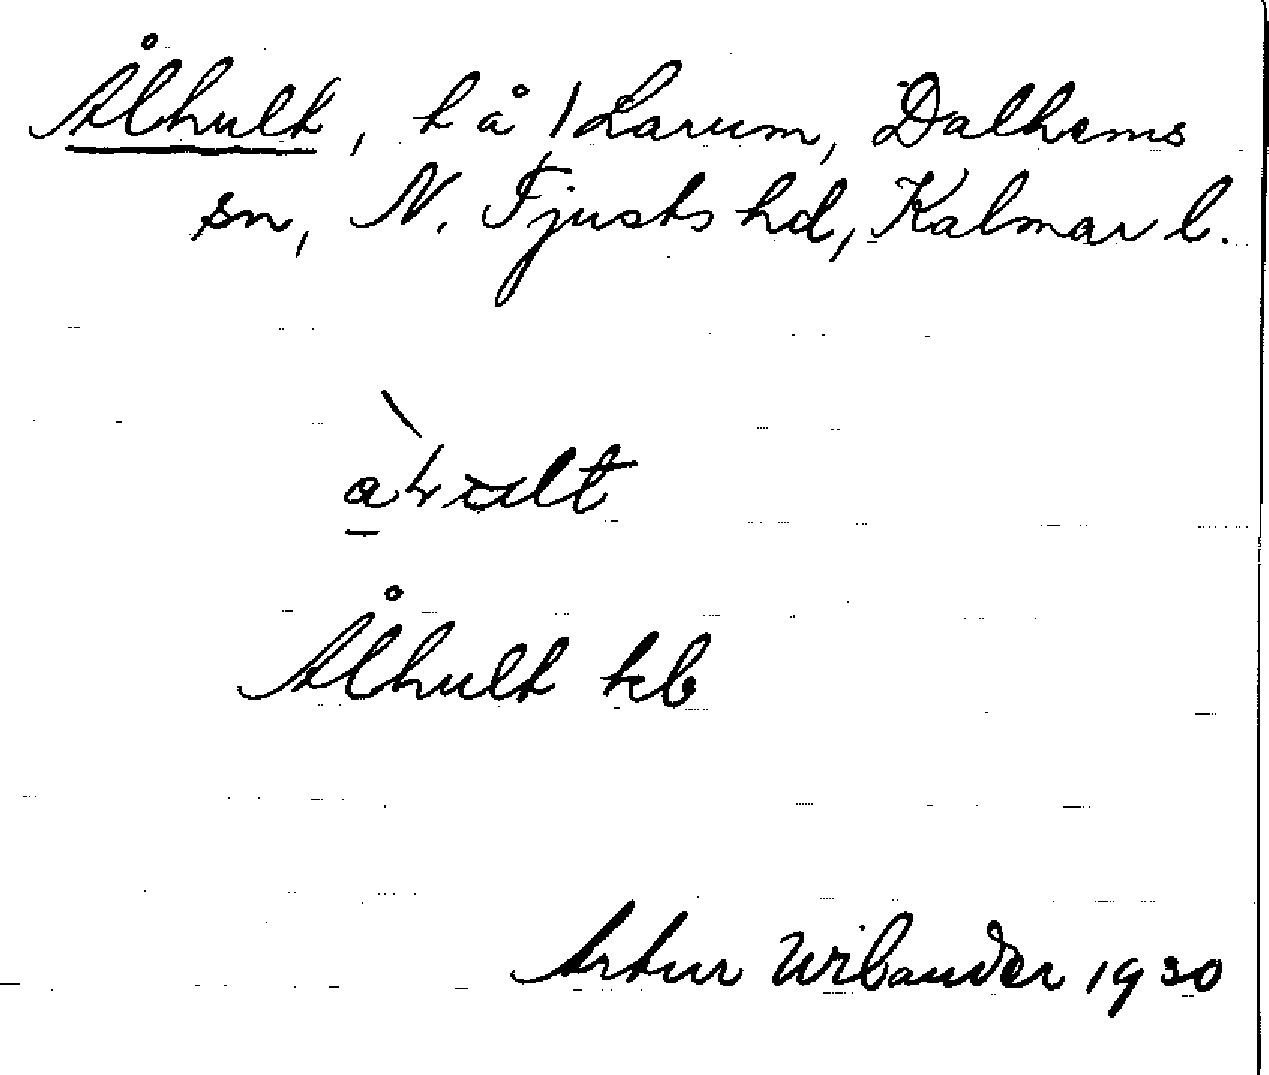 Ålhult, t å /Larum, Dalhems
sn, N. Tjusts hd, Kalmar l.
Ålhult kb
Artur Wilander 1930